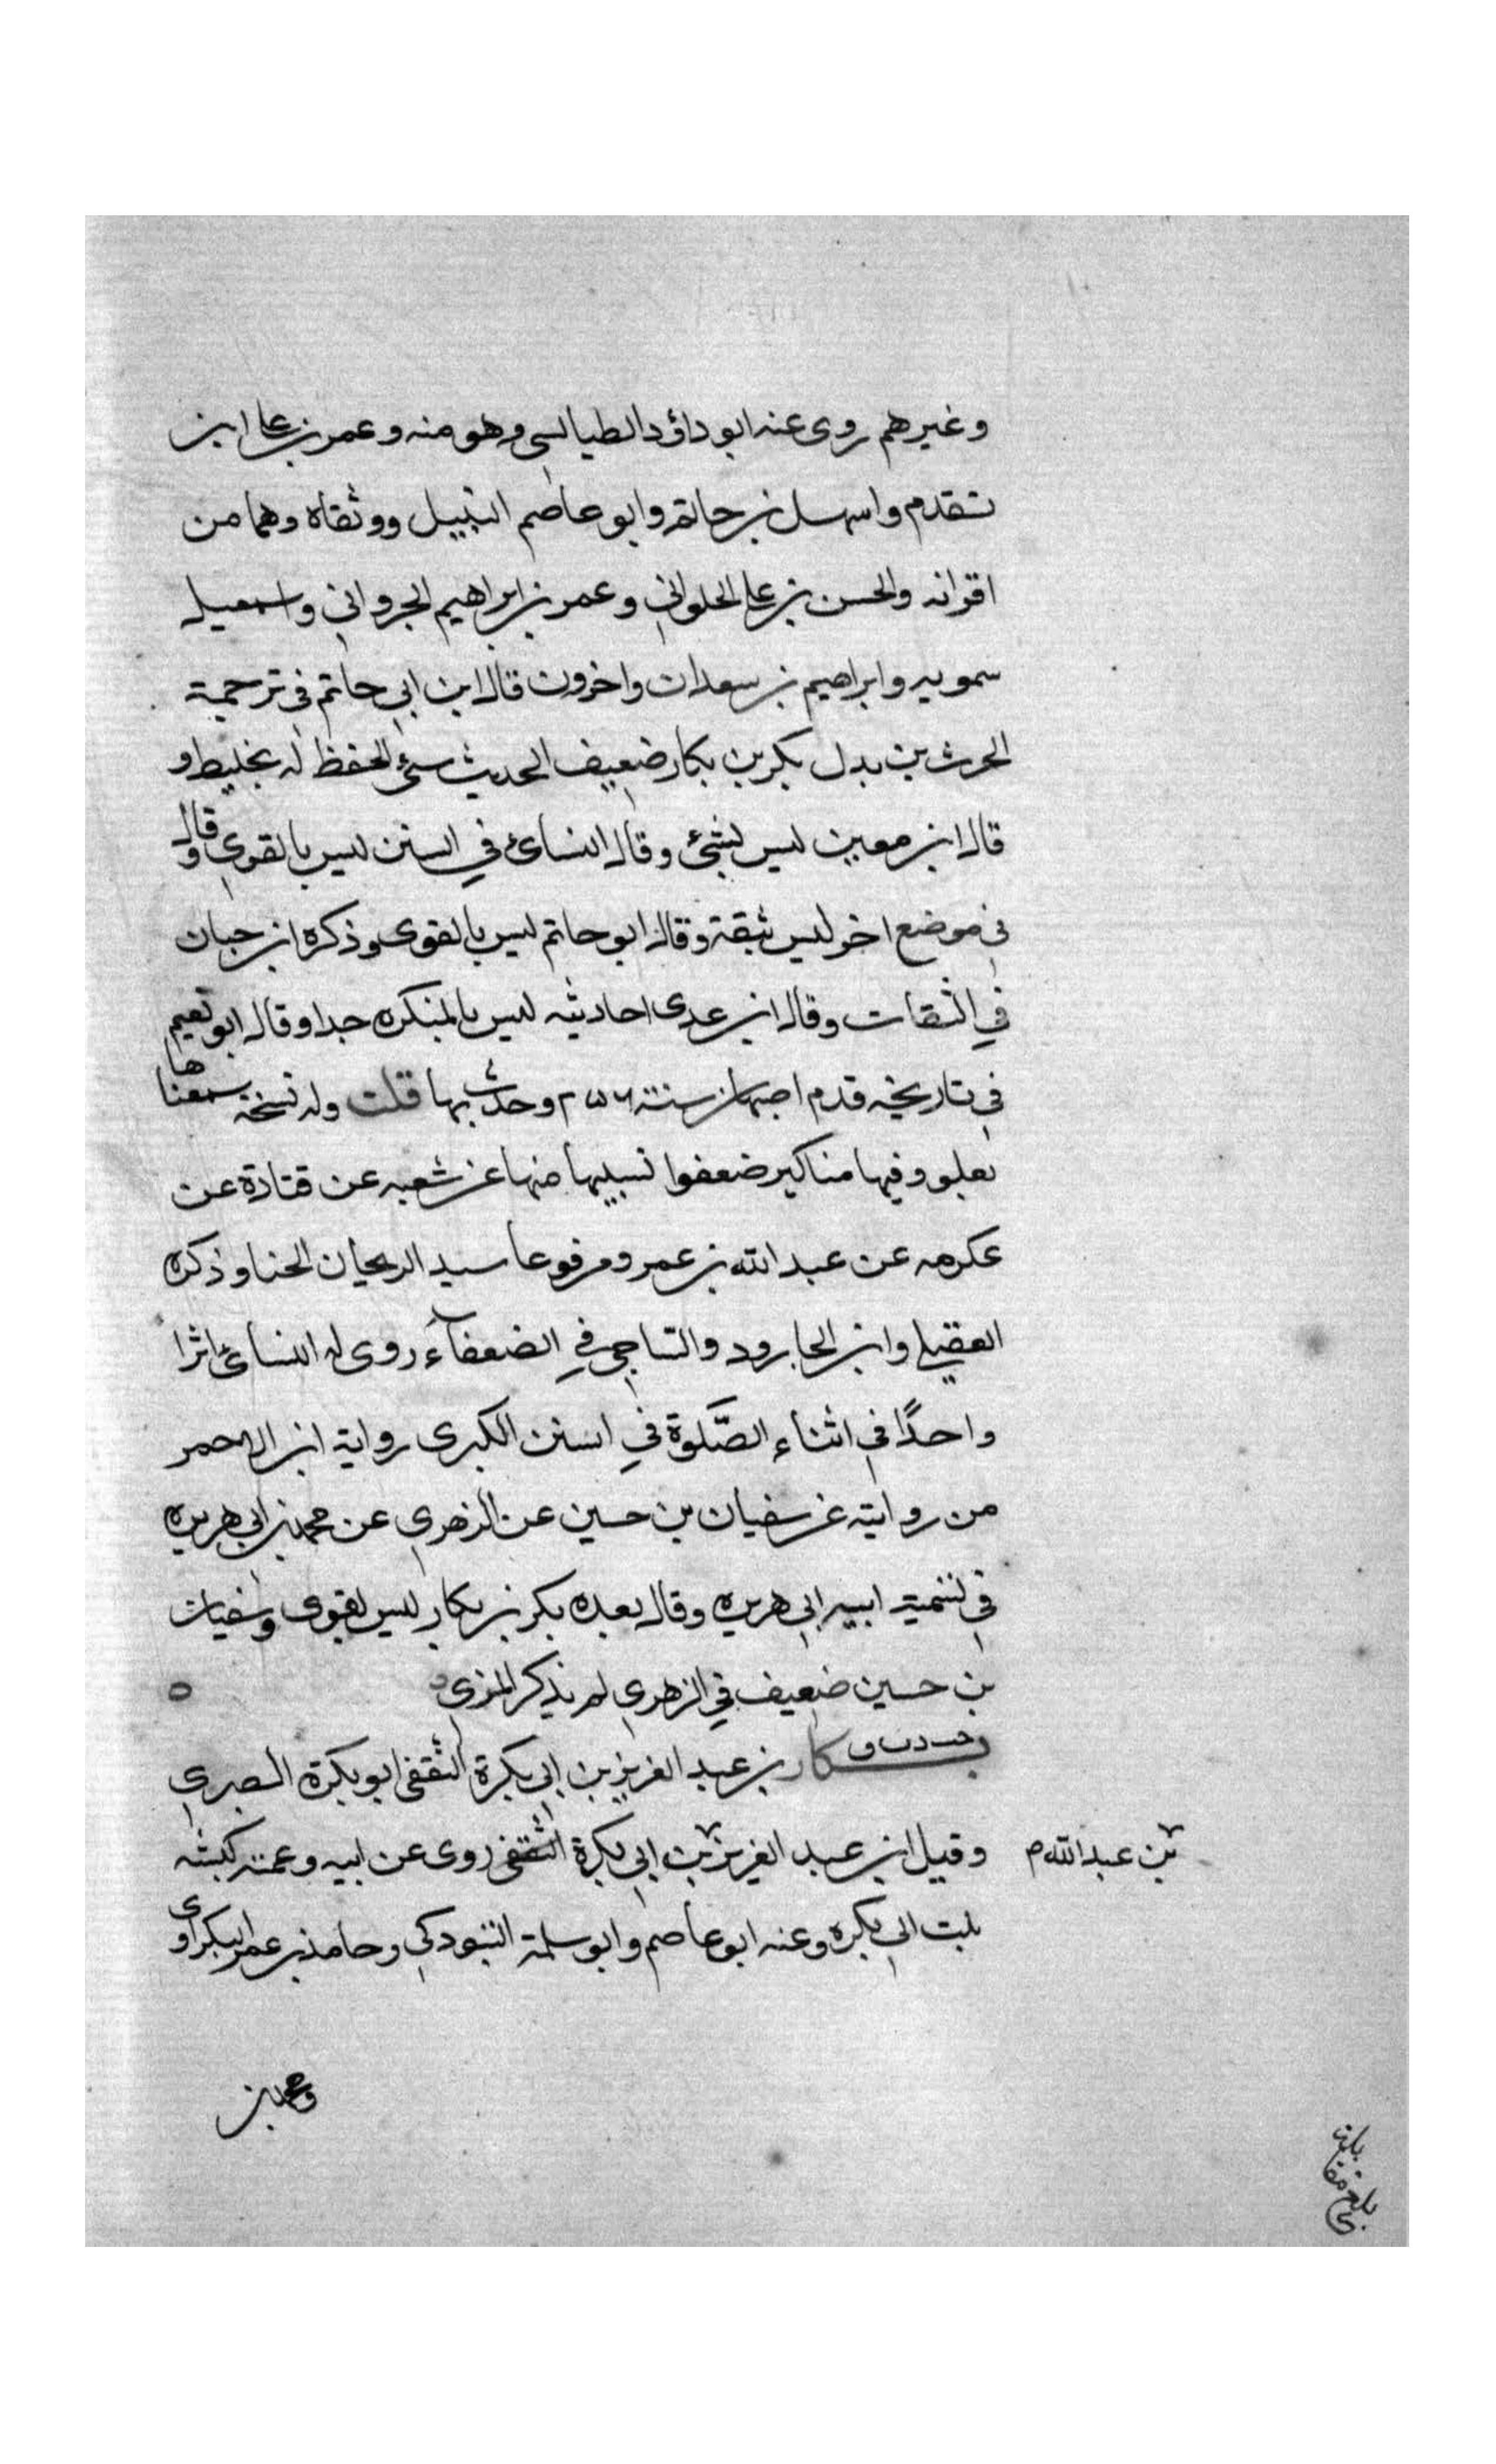 وغيرهم روى عنه ابو داؤد الطيالسى وهو منه وعمر بن على ابن
تقدم واسهل بن حاتم وابو عاصم النبيل ووثقاه وهما من
اقرانه والحسن بن على الحلواني وعمر بن ابراهيم الجرواني واسمعيل
سمويه وابراهيم بن سعدان واخرون قال ابن ابي حاتم في ترجمة
الحرث بن بدل بكر بن بكار ضعيف الحديث سئ الحفظ له تخليط و
قال ابن معين ليس بشئ وقال النسائ في السنن ليس بالقوى وقال
في موضع اخر ليس بثقة وقال ابو حاتم ليس بالقوى وذكره ابن حبان
في الثقات وقال ابن عدى احاديثه ليس بالمنكره جدا وقال ابو نعيم
في تاريخه قدم اصبهان سنة ٢٥٦ وحدث بها قلت وله نسخة سمعناها
بعلو وفيها مناكير ضعفوا بسببها منها عن شعبه عن قتادة عن
عكرمه عن عبد الله بن عمرو مرفوعا سيد الريحان الحنا وذكره
العقيلي وابن الجارود والساجي في الضعفاء روى له النسائ اثرا
واحدًا في اثناء الصَّلوة في السنن الكبرى رواية ابن الاحمر
من روايته عن سفيان بن حسين عن الزهري عن محمد بن ابي هريره
في تسمية ابيه ابي هريره وقال بعده بكر بن بكار ليس بقوى وسفيان
بن حسين ضعيف في الزهري لم يذكر المزى ه
بكار بن عبد العزيز بن ابي بكرة الثقفى ابو بكرة البصري
وقيل ابن عبد العزيز بن ابي بكرة الثقفى روى عن ابيه وعمته كبشه
بن عبد الله م
بنت ابي بكره وعنه ابو عاصم وابو سلمة التبوذكي وحامد بن عمر البكراوى
ومحمد بن
بلغ مقابلة